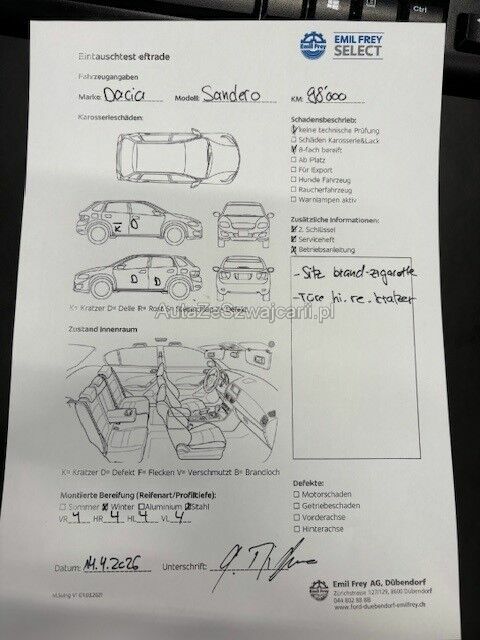 Ctrl
Emil Frey
EMIL FREY
SELECT
Eintauschtest eftrade
Fahrzeugangaben
Marke: Dacia Modell: Sandero KM: 98'000
Karosserieschäden:
Schadensbeschrieb:
keine technische Prüfung
Schäden Karosserie&Lack
8-fach bereift
Ab Platz
Für Export
Hunde Fahrzeug
Raucherfahrzeug
Warnlampen aktiv
K D
Zusätzliche Informationen:
2. Schlüssel
Serviceheft
Betriebsanleitung
D D
- Sitz brand-zigarette
- Türe hi. re. kratzer
K= Kratzer D= Delle R= Rost S= Steinschlag Z= Defekt
AutaZeSzwajcarii.pl
Zustand Innenraum
K= Kratzer D= Defekt F= Flecken V= Verschmutzt B= Brandloch
Montierte Bereifung (Reifenart/Profiltiefe):
Sommer Winter Aluminium Stahl
VR 4 HR 4 HL 4 VL 4
Defekte:
Motorschaden
Getriebeschaden
Vorderachse
Hinterachse
Datum: 14.4.2026 Unterschrift:
Emil Frey AG, Dübendorf
Zürichstrasse 127/129, 8600 Dübendorf
044 802 88 88
www.ford-duebendorf-emilfrey.ch